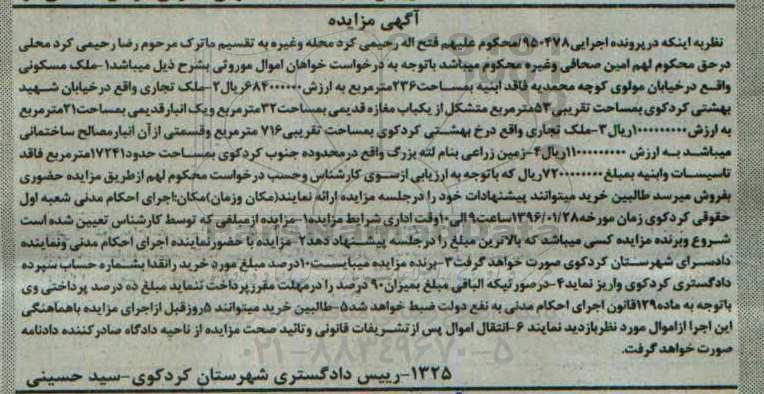 آگهی مزایده
نظربه اینکه درپرونده اجرایی۹۵۰۴۷۸/محکوم علیهم فتح اله رحیمی کرد محله وغیره به تقسیم ماترک مرحوم رضا رحیمی کرد محلی
درحق محکوم لهم امین صحافی وغیره محکوم میباشد باتوجه به درخواست خواهان اموال موروثی بشرح ذیل میباشد۱-ملک مسکونی
واقع درخیابان مولوی کوچه محمدیه فاقد ابنیه بمساحت۲۳۶مترمربع به ارزش۶۸۴۰۰۰۰۰۰ریال۲-ملک تجاری واقع درخیابان شهید
بهشتی کردکوی بمساحت تقریبی۵۳مترمربع متشکل از یکباب مغازه قدیمی بمساحت۳۲مترمربع ویک انبارقدیمی بمساحت۲۱مترمربع
به ارزش۱۰۰۰۰۰۰۰۰۰ریال۳-ملک تجاری واقع درخ بهشتی کردکوی بمساحت تقریبی۷۱۶ مترمربع وقسمتی ازآن انبارمصالح ساختمانی
میباشد به ارزش ۱۱۰۰۰۰۰۰۰۰۰ریال۴-زمین زراعی بنام لته بزرگ واقع درمحدوده جنوب کردکوی بمساحت حدود۱۷۲۴۱مترمربع فاقد
تاسیسات وابنیه بمبلغ۷۲۰۰۰۰۰۰۰۰ریال که باتوجه به ارزیابی ازسوی کارشناس وحسب درخواست محکوم لهم ازطریق مزایده حضوری
بفروش میرسد طالبین خرید میتوانند پیشنهادات خود را درجلسه مزایده ارائه نمایند(مکان وزمان)مکان:اجرای احکام مدنی شعبه اول
حقوقی کردکوی زمان مورخه۱۳۹۶/۰۱/۲۸ساعت۹الی۱۰وقت اداری شرایط مزایده۱-مزایده ازمبلغی که توسط کارشناس تعیین شده است
شروع وبرنده مزایده کسی میباشد که بالاترین مبلغ را درجلسه پیشنهاد دهد۲-مزایده با حضورنماینده اجرای احکام مدنی ونماینده
دادسرای شهرستان کردکوی صورت خواهد گرفت۳-برنده مزایده میبایست۱۰درصد مبلغ مورد خرید رانقدا بشماره حساب سپرده
دادگستری کردکوی واریز نماید۴-درصورتیکه الباقی مبلغ بمیزان۹۰درصد را درمهلت مقررپرداخت ننماید مبلغ ده درصد پرداختی وی
باتوجه به ماده۱۲۹قانون اجرای احکام مدنی به نفع دولت ضبط خواهد شد۵-طالبین خرید میتوانند ۵روزقبل ازاجرای مزایده باهماهنگی
این اجرا ازاموال مورد نظربازدید نمایند ۶-انتقال اموال پس ازتشریفات قانونی وتائید صحت مزایده از ناحیه دادگاه صادرکننده دادنامه
صورت خواهد گرفت.
۱۳۲۵-رییس دادگستری شهرستان کردکوی-سید حسینی
ParsNamadData
۰۲۱-۸۸۳۴۹۶۷۰-۵